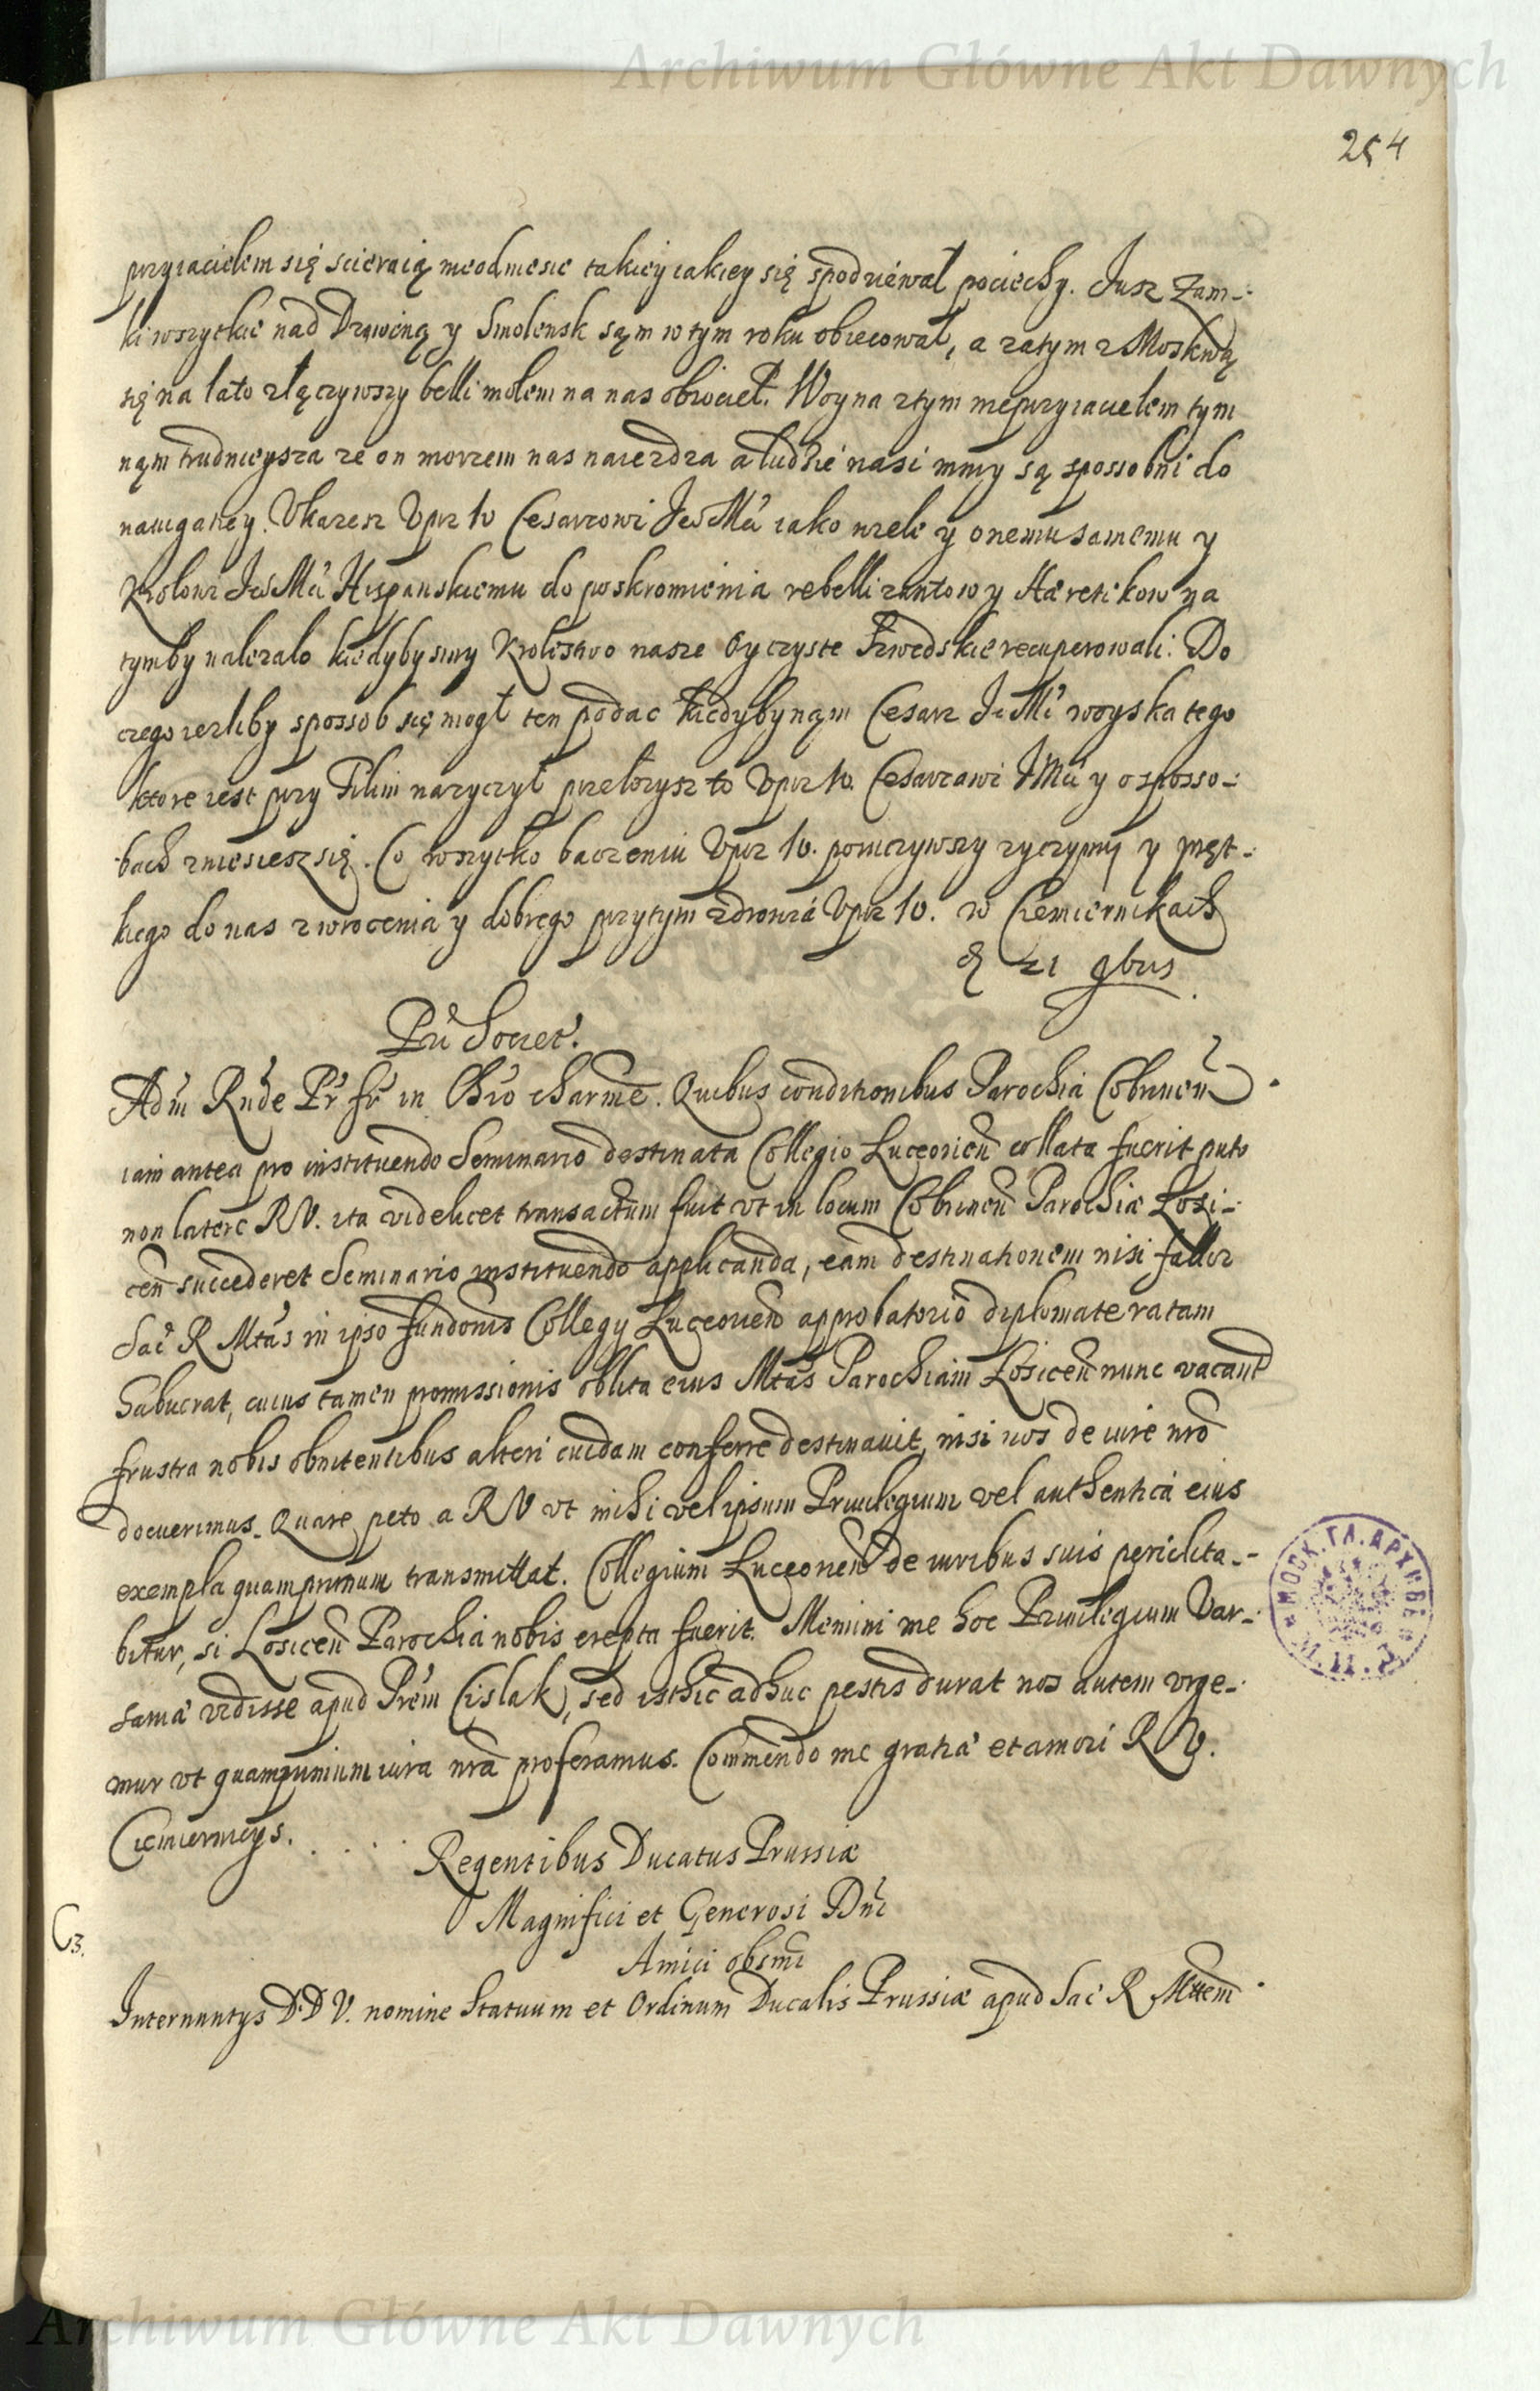 Archiwum Główne Akt Dawnych
254
przyiacielem się scieraią nieodniesie takiey iakiey się spodziewał pociechy. Jusz Zam-
ki wszytkie nad Dzwiną y Smolensk sąm w tym roku obiecował, a zatym z Moskwą
się na lato złączywszy belli molem na nas obrociel. Woyna z tym nieprzyiacielem tym
nąm trudnieysza ze on morzem nas naiezdza a ludzie nasi mniy są spossobni do
nauigatiey. Vkazesz Vprz W Cesarzowi Je°Mći iako wiele y onemu samemu y
Krolowi Je°Mći Hispanskiemu do poskromienia rebellizantow y Haeretikow na
tymby nalezało kiedybysmy Krolestwo nasze Oyczyste Szwedskie recuperowali. Do
czego iezliby spossob się mogł ten podac kiedyby nąm Cesarz Je Mć woyska tego
ktore iest przy Tilim nazyczył przełozysz to Vprz W. Cesarzowi JMći y o sposso-
bach zniesiesz się. Co wszytko baczeniu Vprz W. poruczywszy zyczymy y pręt-
kiego do nas zwrocenia y dobrego przytym zdrowia Vprz W. w Czemiernikach
21 9bris
Pri Societ.
Adm Rnde Pr fr in Chro charme. Quibus conditionibus Parochia Cobrinen
iam antea pro instituendo Seminario destinata Collegio Luceorien collata fuerit puto
non latere RV. ita videlicet transactum fuit vt in locum Cobrinen Parochiæ Losi-
cen succederet Seminario instituendo applicanda, eam destinationem nisi fallor
Sac R Mtas in ipso fundonis Collegy Luceorien approbatorio diplomate ratam
habuerat, cuius tamen promissionis oblita eius Mtas Parochiam Losicen nunc vacant
frustra nobis obnitentibus alteri cuidam conferre destinauit, nisi nos de iure nro
docuerimus. Quare peto a RV vt mihi vel ipsum Priuilegium vel authentica eius
exempla quamprimum transmittat. Collegium Luceorien de iuribus suis periclita-
bitur, si Losicen Parochia nobis erepta fuerit. Memini me hoc Priuilegium Var-
sauiæ vidisse apud Prem Cislak, sed isthic adhuc pestis durat nos autem vrge-
mur vt quamprimum iura nra proferamus. Commendo me gratiæ et amori RV.
Ciemiernicys.
Regentibus Ducatus Prussiæ
Magnifici et Generosi Dni
Amici obsmi
Cz.
Internuntys D.D V. nomine Statuum et Ordinum Ducalis Prussiæ apud Sac R Mttem
МОСК. ГЛ. АРХИВЪ
Archiwum Główne Akt Dawnych